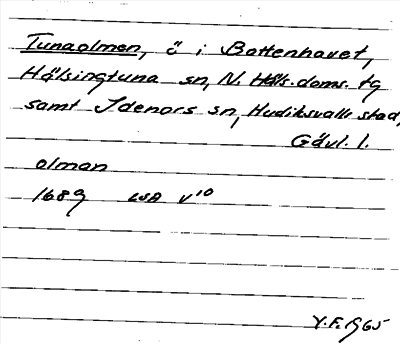 Tunaolmen, ö i Bottenhavet,
Hälsingtuna sn, N. Häls. doms. tg
samt Idenors sn, Hudiksvalls stad,
Gävl. l.
olman
1689 LSA V10
Y.F. 1965